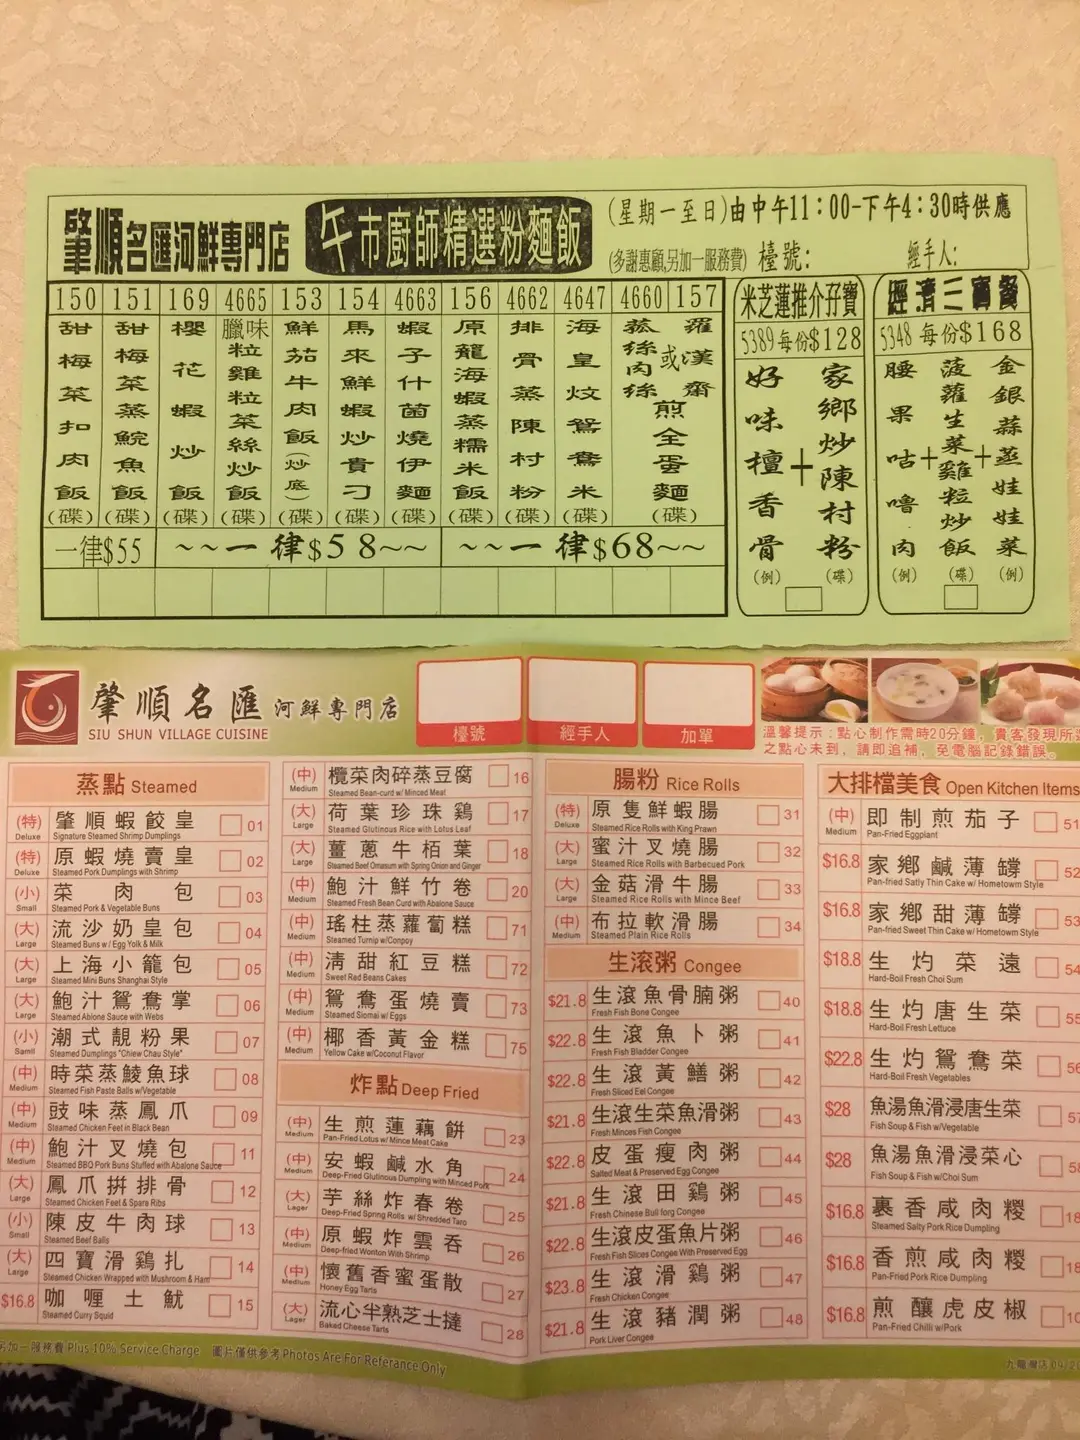 肇順名匯河鮮專門店
午市廚師精選粉麵飯
(星期一至日)由中午11：00-下午4：30時供應
(多謝惠顧,另加一服務費) 檯號： 經手人：
150 甜梅菜扣肉飯(碟)
151 甜梅菜蒸鯇魚飯(碟)
169 櫻花蝦炒飯(碟)
4665 臘味粒雞粒菜絲炒飯(碟)
153 鮮茄牛肉飯(炒底)(碟)
154 馬來鮮蝦炒貴刁(碟)
4663 蝦子什菌燒伊麵(碟)
156 原籠海蝦蒸糯米飯(碟)
4662 排骨蒸陳村粉(碟)
4647 海皇炆鴛鴦米(碟)
4660 157 菇絲肉絲或羅漢齋煎全蛋麵(碟)
一律$55
~~一律$58~~
~~一律$68~~
米芝蓮推介孖寶
5389 每份$128
好味檀香骨(例)
+
家鄉炒陳村粉(碟)
經濟三寶餐
5348 每份$168
腰果咕嚕肉(例)
+
菠蘿生菜雞粒炒飯(碟)
+
金銀蒜蒸娃娃菜(例)
肇順名匯 河鮮專門店
SIU SHUN VILLAGE CUISINE
檯號
經手人
加單
溫馨提示：點心制作需時20分鐘，貴客發現所
之點心未到，請即追補，免電腦記錄錯誤。
蒸點 Steamed
(特) 肇順蝦餃皇 01
Deluxe Signature Steamed Shrimp Dumplings
(特) 原蝦燒賣皇 02
Deluxe Steamed Pork Dumplings with Shrimp
(小) 菜肉包 03
Small Steamed Pork & Vegetable Buns
(大) 流沙奶皇包 04
Large Steamed Buns w / Egg Yolk & Milk
(大) 上海小籠包 05
Large Steamed Mini Buns Shanghai Style
(大) 鮑汁鴛鴦掌 06
Large Steamed Ablone Sauce with Webs
(小) 潮式靚粉果 07
Samll Steamed Dumplings "Chiew Chau Style"
(中) 時菜蒸鯪魚球 08
Medium Steamed Fish Paste Balls w/Vegetable
(中) 豉味蒸鳳爪 09
Medium Steamed Chicken Feet in Black Bean
(中) 鮑汁叉燒包 11
Medium Steamed BBQ Pork Buns Stuffed with Abalone Sauce
(大) 鳳爪拼排骨 12
Large Steamed Chicken Feet & Spare Ribs
(小) 陳皮牛肉球 13
Small Steamed Beef Balls
(大) 四寶滑鷄扎 14
Large Steamed Chicken Wrapped with Mushroom & Ham
$16.8 咖喱土魷 15
Steamed Curry Squid
(中) 欖菜肉碎蒸豆腐 16
Medium Steamed Bean-curd w/ Minced Meat
(大) 荷葉珍珠鷄 17
Large Steamed Glutinous Rice with Lotus Leaf
(大) 薑蔥牛栢葉 18
Large Steamed Beef Omasum with Spring Onion and Ginger
(中) 鮑汁鮮竹卷 20
Medium Steamed Fresh Bean Curd with Abalone Sauce
(中) 瑤柱蒸蘿蔔糕 71
Medium Steamed Turnip w/Conpoy
(中) 清甜紅豆糕 72
Medium Sweet Red Beans Cakes
(中) 鴛鴦蛋燒賣 73
Medium Steamed Siomai w/ Eggs
(中) 椰香黃金糕 75
Medium Yellow Cake w/Coconut Flavor
炸點 Deep Fried
(中) 生煎蓮藕餅 23
Medium Pan-Fried Lotus w/ Mince Meat Cake
(中) 安蝦鹹水角 24
Medium Deep-Fried Glutinous Dumpling with Minced Pork
(大) 芋絲炸春卷 25
Lager Deep-Fried Spring Rolls w/ Shredded Taro
(中) 原蝦炸雲吞 26
Medium Deep-fried Wonton With Shrimp
(中) 懷舊香蜜蛋散 27
Medium Honey Egg Tarts
(大) 流心半熟芝士撻 28
Lager Baked Cheese Tarts
腸粉 Rice Rolls
(特) 原隻鮮蝦腸 31
Deluxe Steamed Rice Rolls with King Prawn
(大) 蜜汁叉燒腸 32
Large Steamed Rice Rolls with Barbecued Pork
(大) 金菇滑牛腸 33
Large Steamed Rice Rolls with Mince Beef
(中) 布拉軟滑腸 34
Medium Steamed Plain Rice Rolls
生滚粥 Congee
$21.8 生滾魚骨腩粥 40
Fresh Fish Bone Congee
$22.8 生滾魚卜粥 41
Fresh Fish Bladder Congee
$22.8 生滾黃鱔粥 42
Fresh Sliced Eel Congee
$21.8 生滾生菜魚滑粥 43
Fresh Minces Fish Congee
$22.8 皮蛋瘦肉粥 44
Salted Meat & Preserved Egg Congee
$21.8 生滾田鷄粥 45
Fresh Chinese Bull forg Congee
$22.8 生滾皮蛋魚片粥 46
Fresh Fish Slices Congee With Preserved Egg
$23.8 生滾滑鷄粥 47
Fresh Chicken Congee
$21.8 生滾豬潤粥 48
Pork Liver Congee
大排檔美食 Open Kitchen Items
(中) 即制煎茄子 51
Medium Pan-Fried Eggplant
$16.8 家鄉鹹薄罉 52
Pan-fried Satly Thin Cake w/ Hometown Style
$16.8 家鄉甜薄罉 53
Pan-fried Sweet Thin Cake w/ Hometown Style
$18.8 生灼菜遠 54
Hard-Boil Fresh Choi Sum
$18.8 生灼唐生菜 55
Hard-Boil Fresh Lettuce
$22.8 生灼鴛鴦菜 56
Hard-Boil Fresh Vegetables
$28 魚湯魚滑浸唐生菜 57
Fish Soup & Fish w/Vegetable
$28 魚湯魚滑浸菜心 58
Fish Soup & Fish w/Choi Sum
$16.8 裹香咸肉糉 18
Steamed Salty Pork Rice Dumpling
$16.8 香煎咸肉糉 18
Pan-Fried Pork Rice Dumpling
$16.8 煎釀虎皮椒 10
Pan-Fried Chilli w/Pork
另加一服務費 Plus 10% Service Charge 圖片僅供參考 Photos Are For Referance Only
九龍灣店